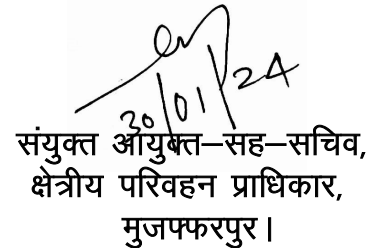 30/01/24
संयुक्त आयुक्त–सह–सचिव,
क्षेत्रीय परिवहन प्राधिकार,
मुजफ्फरपुर।